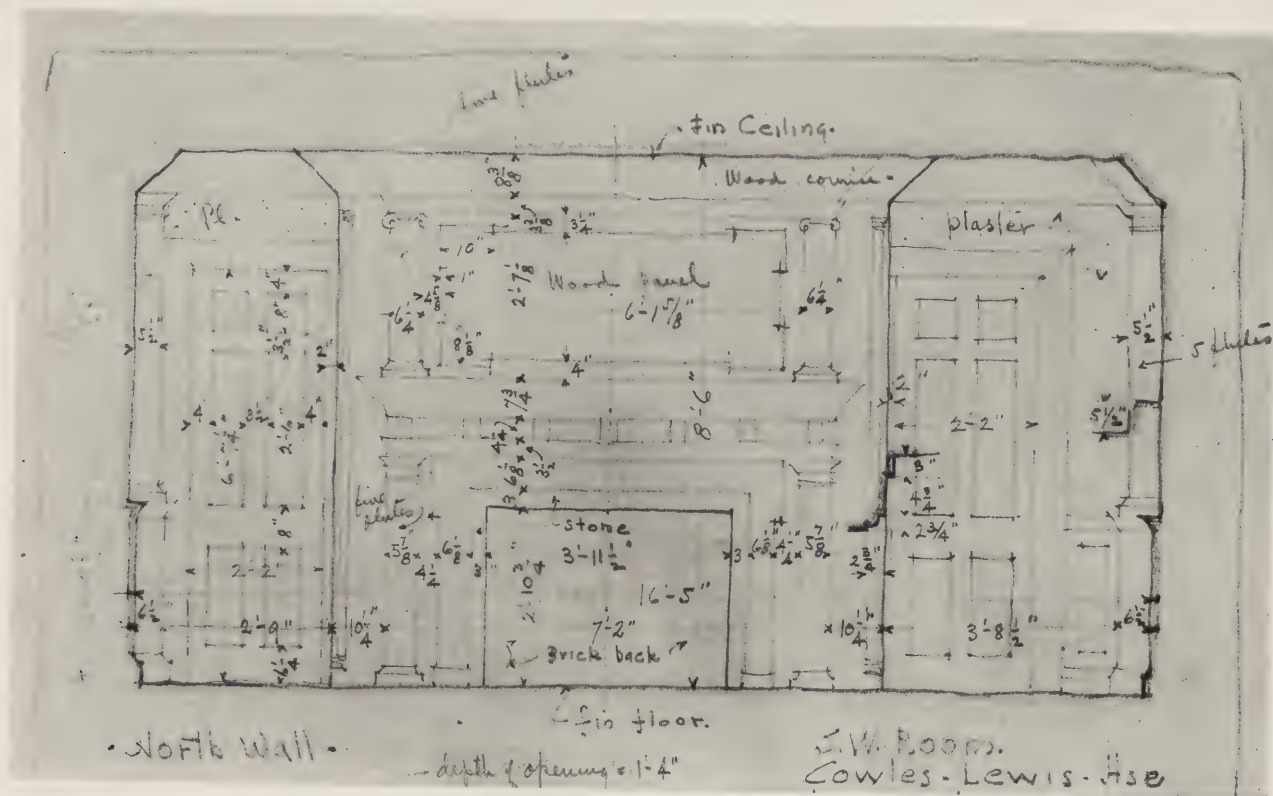 five flutes
Fin Ceiling.
Wood cornice.
Pl.
plaster
8 3/8"
3/4"
10"
1"
2'-7 1/8
Wood Panel
6'-1 5/8"
6 1/4
4 5/8"
8 1/8"
6 1/4"
5 1/2"
5 1/2"
5 flutes
4"
2"
4"
2"
7 3/4
8'-6"
4
3 1/2
4"
2'-6"
4 1/4
3 1/2
2'-2"
5 1/2"
3"
4 3/4"
2 3/4"
five flutes
8"
stone
3'-11 1/2"
5 7/8"
4 1/4
6 1/8"
3"
2'-10 3/4"
3
6 1/8"
4 1/4"
5 7/8"
2 3/4"
2'-2"
16'-5"
6 1/2
2'-9"
10 1/4"
7'-2"
10 1/4"
3'-8 1/2"
6 1/2"
6 1/4"
Brick back
fin floor.
North Wall
depth of opening = 1'-4"
S.W. Room.
Cowles-Lewis-Hse